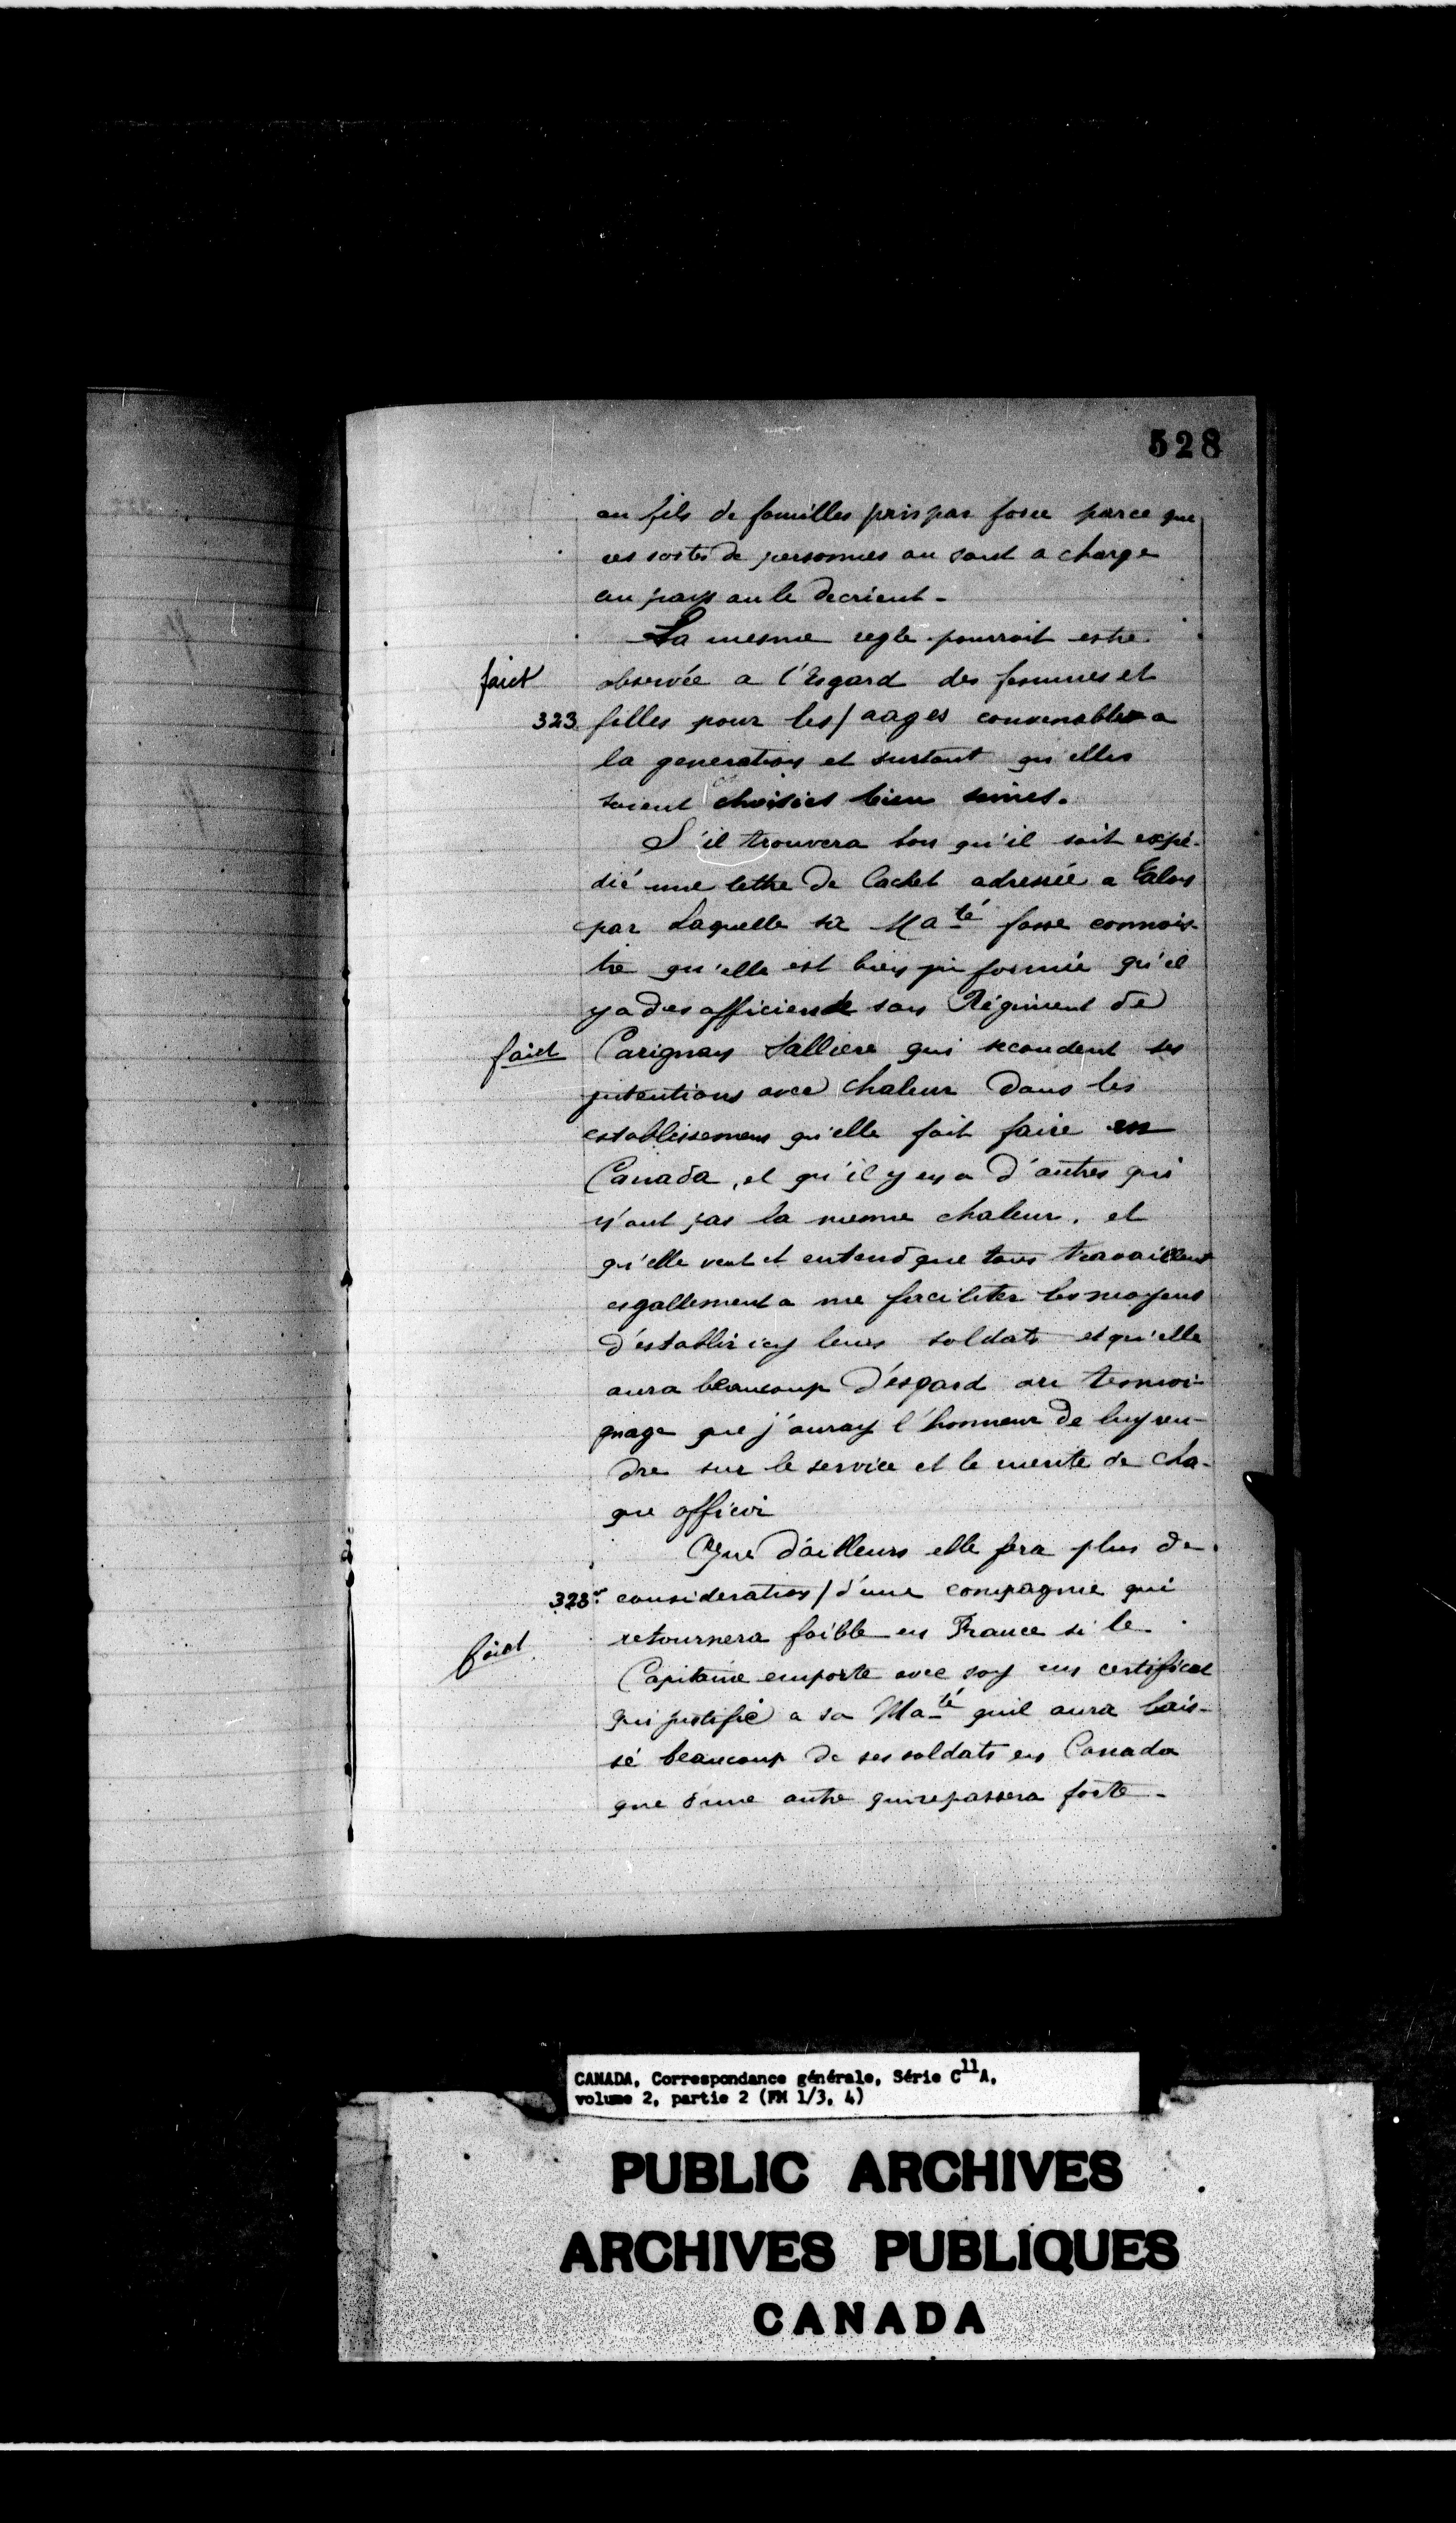 528
ou fils de familles pris par force parce que
ces sortes de personnes ou sont a charge
au pays ou le decrient -
La mesme regle pourroit estre
faict
observée a l'Esgard des femmes et
323 filles pour les / aages convenables a
la generation et surtout qu'elles
soient choisies bien seines.
S'il trouvera bon qu'il soit expé-
dié une lettre de Cachet adressée a Talon
par Laquelle sa Ma té fasse connois-
tre qu'elle est bien jnformée qu'il
y a des officiers de son Régiment de
faict
Carignan Salliere qui secondent ses
jntentions avec chaleur dans les
establissemens qu'elle fait faire en
Canada, et qu'il y en a d'autres qui
n'ont pas la mesme chaleur, et
qu'elle veut et entend que tous travaillent
esgallement a me faciliter les moyens
d'establir icy leurs soldats et qu'elle
aura beaucoup d'esgard au tesmoi-
gnage que j'auray l'honneur de luy ren-
dre sur le service et le merite de cha-
que officier
Que d'ailleurs elle fera plus de
323 v consideration / d'une compagnie qui
retournera foible en France si le
faict
Capitaine emporte avec soy un certificat
qui justifie a sa Ma té quil aura lais-
sé beaucoup de ses soldats en Canada
que d'une autre qui repassera forte -
CANADA, Correspondance générale, Série C11A,
volume 2, partie 2 (FM 1/3, 4)
PUBLIC ARCHIVES
ARCHIVES PUBLIQUES
CANADA